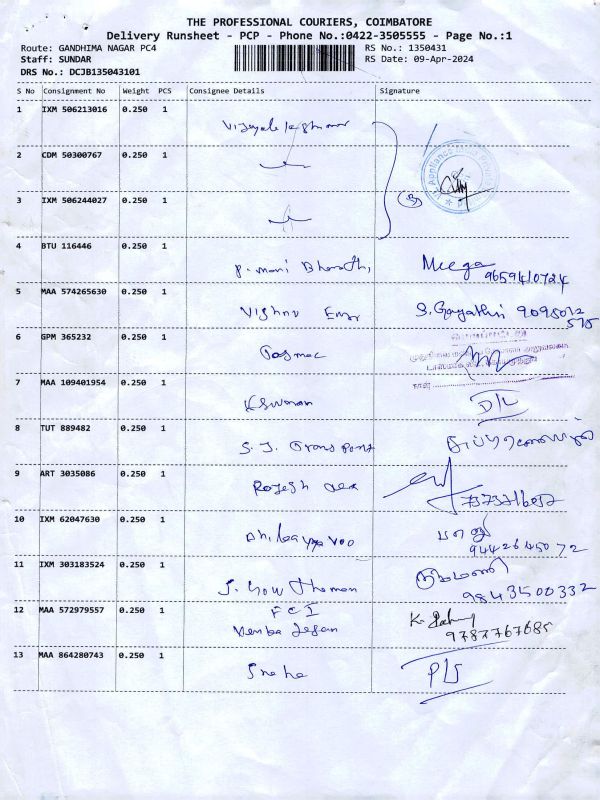 THE PROFESSIONAL COURIERS, COIMBATORE
Delivery Runsheet - PCP - Phone No.:0422-3505555 - Page No.:1
Route: GANDHIMA NAGAR PC4
RS No.: 1350431
Staff: SUNDAR
RS Date: 09-Apr-2024
DRS No.: DCJB135043101
S No Consignment No Weight PCS Consignee Details Signature
1 IXM 506213016 0.250 1
2 CDM 50300767 0.250 1
3 IXM 506244027 0.250 1
4 BTU 116446 0.250 1 P. Mani Bharathi,
9659410724
5 MAA 574265630 0.250 1 Vishnu Engr S. Gayathri 9095012
575
6 GPM 365232 0.250 1 Tasmac
7 MAA 109401954 0.250 1 D/L
8 TUT 889482 0.250 1 S. J. Transport
9 ART 3035086 0.250 1 Rajesh
10 IXM 62047630 0.250 1
9442645072
11 IXM 303183524 0.250 1 J. Gowthaman
9843500332
12 MAA 572979557 0.250 1 FCI
9787767685
13 MAA 864280743 0.250 1 Sneha